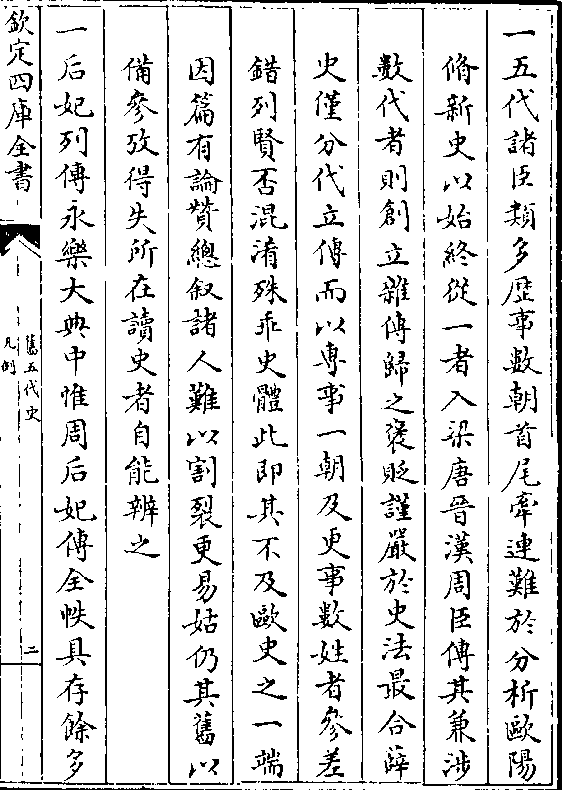 一五代諸臣類多歴事數朝首尾牽連難於分析歐陽
脩新史以始終從一者入梁唐晉漢周臣傳其兼涉
數代者則創立雜傳歸之襃貶謹嚴於史法最合薛
史僅分代立傳而以專事一朝及更事數姓者參差
錯列賢否混淆殊乖史體此即其不及歐史之一端
因篇有論贊總叙諸人難以割裂更易姑仍其舊以
備參攷得失所在讀史者自能辨之
一后妃列傳永樂大典中惟周后妃傳全帙具存餘多
欽定四庫全書
舊五代史
凡例
二